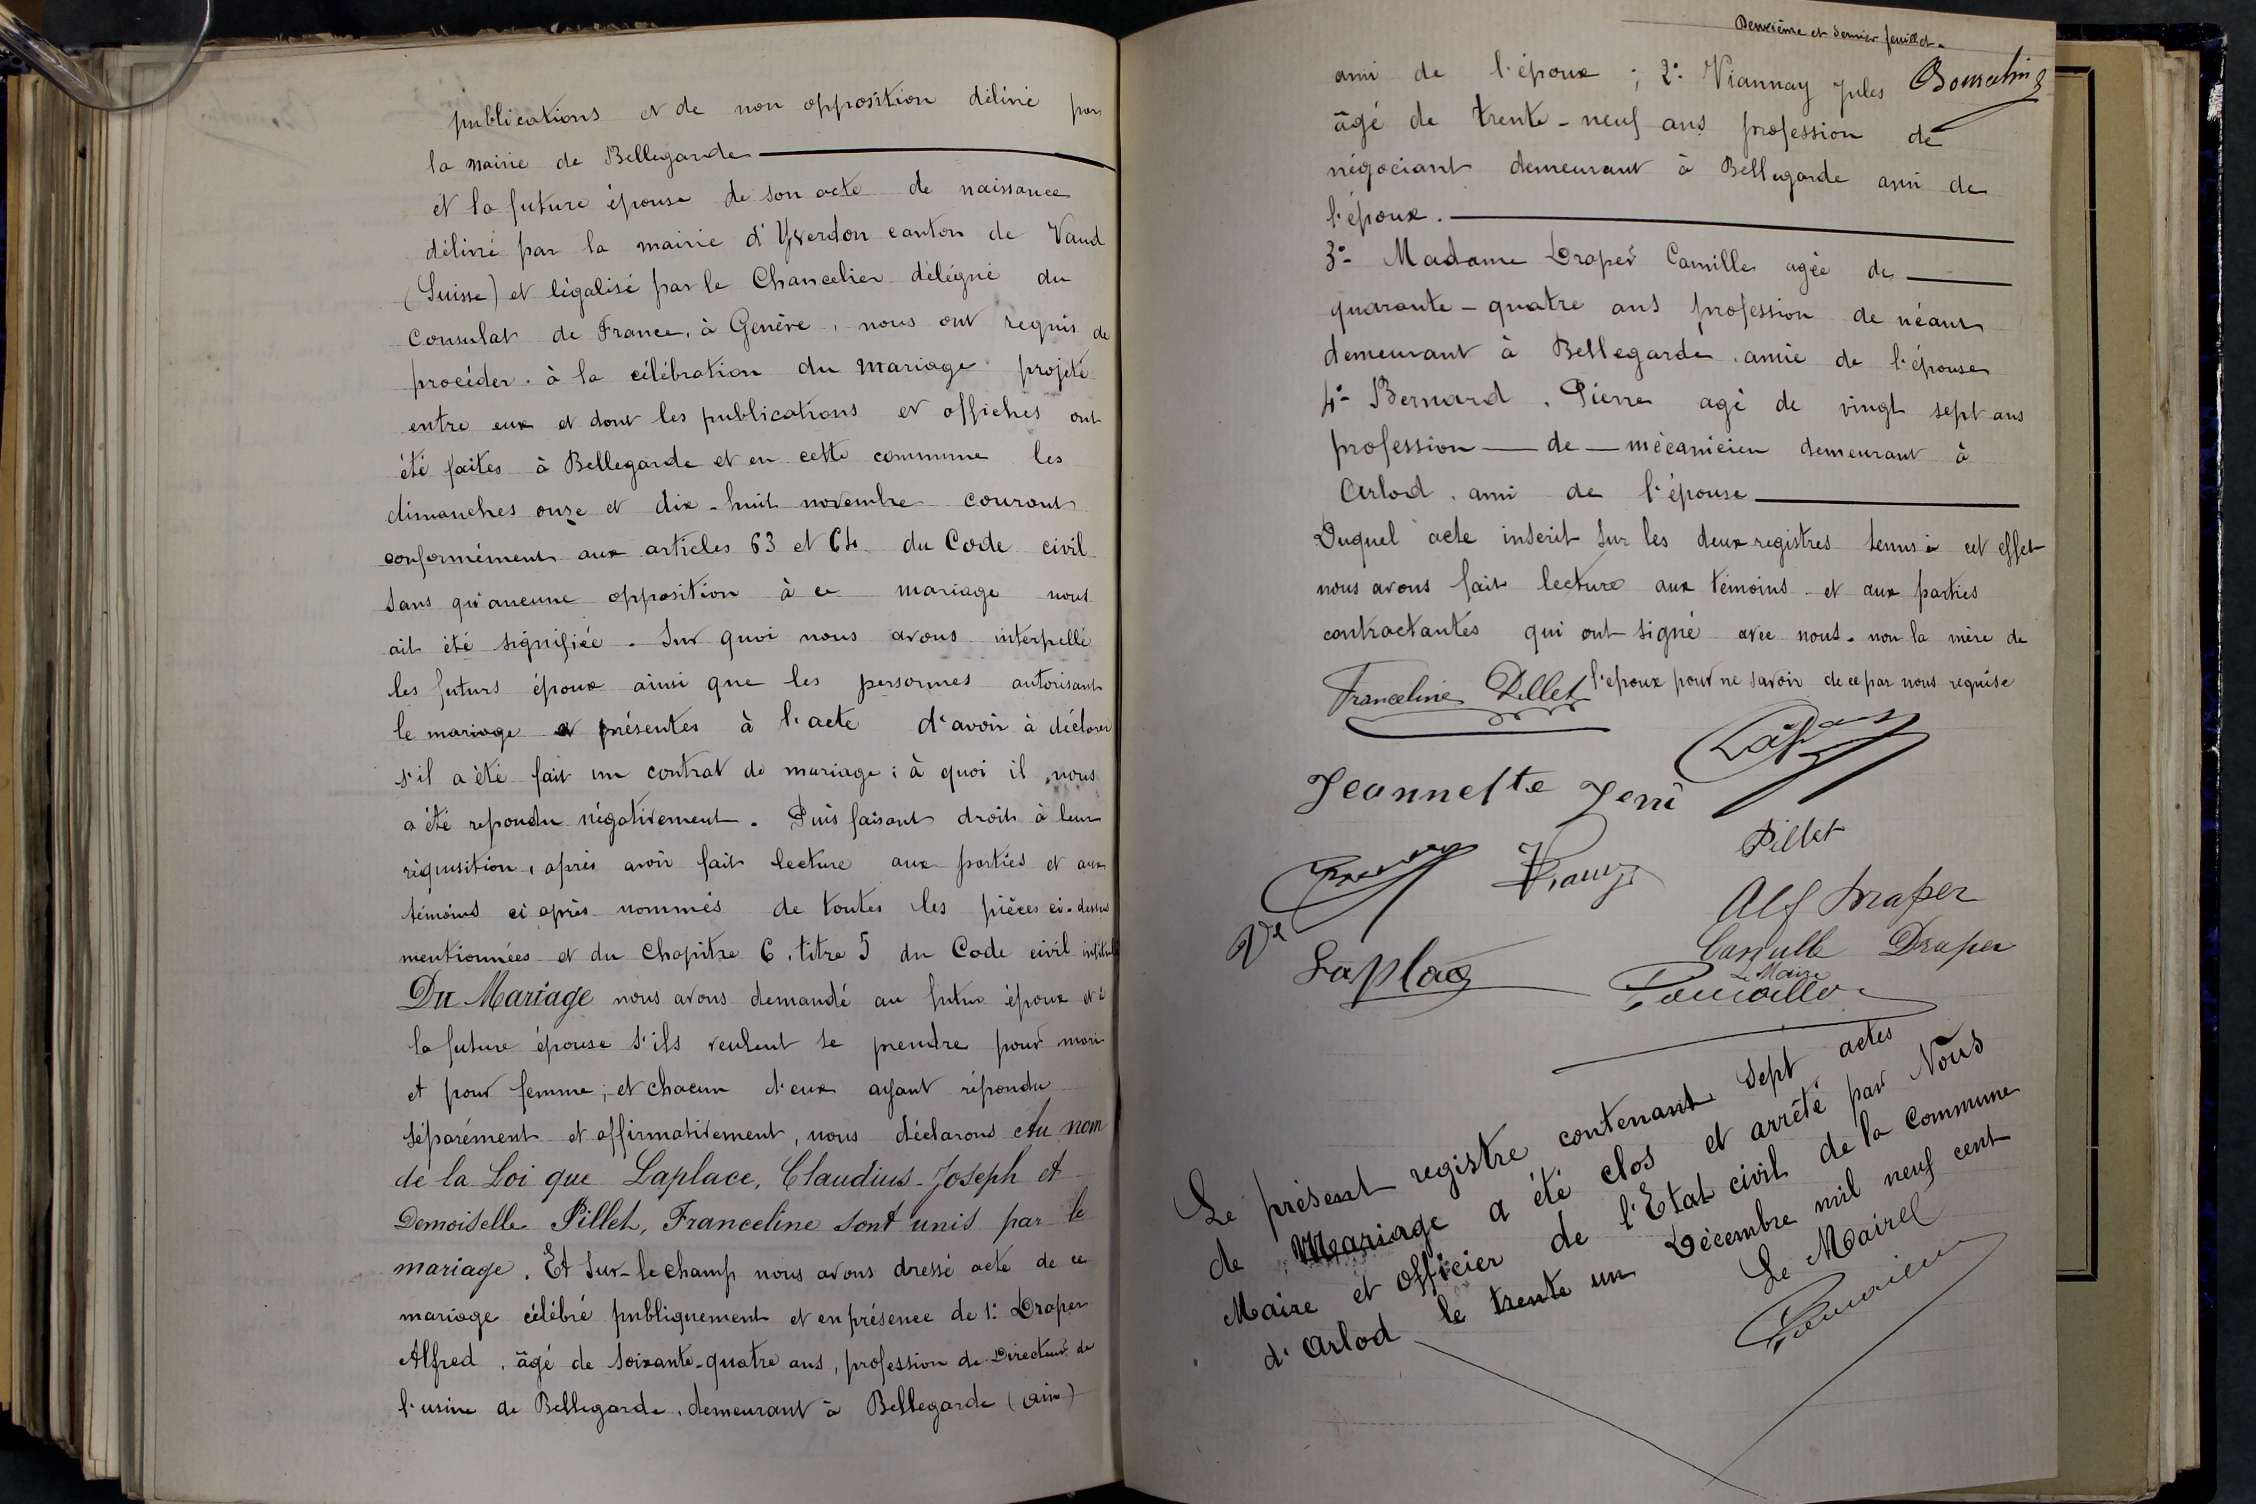 publications et de non opposition délivré par
la mairie de Bellegarde
et la future épouse de son acte de naissance
délivré par la mairie d'Yverdon canton de Vaud
(Suisse) et légalisé par le Chancelier délégué du
Consulat de France, à Genève, nous ont requis de
procéder à la célébration du mariage projeté
entre eux et dont les publications et affiches ont
été faites à Bellegarde et en cette commune les
dimanches onze et dix-huit novembre courant
conformément aux articles 63 et 64 du Code civil
sans qu'aucune opposition à ce mariage nous
ait été signifiée. Sur quoi nous avons interpellé
les futurs époux ainsi que les personnes autorisant
le mariage et présentes à l'acte d'avoir à déclarer
s'il a été fait un contrat de mariage ; à quoi il nous
a été repondu négativement. Puis faisant droit à leur
réquisition, après avoir fait lecture aux parties et aux
témoins ci après nommés de toutes les pièces ci-dessus
mentionnées et du chapitre 6, titre 5 du Code civil intitulé
Du Mariage nous avons demandé au futur époux et à
la future épouse s'ils veulent se prendre pour mari
et pour femme ; et chacun d'eux ayant répondu
séparément et affirmativement, nous déclarons Au nom
de la Loi que Laplace, Claudius-Joseph et
Demoiselle Pillet, Franceline sont unis par le
mariage. Et sur-le champ nous avons dressé acte de ce
mariage célébré publiquement et en présence de 1° Draper
Alfred, âgé de soixante-quatre ans, profession de Directeur de
l'usine de Bellegarde, demeurant à Bellegarde (Ain)
Deuxième et dernier feuillet.
ami de l'époux ; 2° Viannay Jules
âgé de trente-neuf ans profession de
négociant demeurant à Bellegarde ami de
l'époux.
3° Madame Draper Camille agée de
quarante-quatre ans profession de néant
demeurant à Bellegarde, amie de l'épouse
4° Bernard, Pierre agé de vingt sept ans
profession de mécanicien demeurant à
Arlod, ami de l'épouse
Duquel acte inscrit sur les deux registres tenus à cet effet
nous avons fait lecture aux témoins et aux parties
contractantes qui ont signé avec nous. non la mère de
l'epoux pour ne savoir de ce par nous requise
Franceline Pillet
Jeannette Jenni
Pillet
Alf Draper
Camille Draper
Laplace
Le Maire
Le présent registre contenant sept actes
de Mariage a été clos et arrêté par Nous
Maire et officier de l'Etat civil de la commune
d'Arlod le trente un Décembre mil neuf cent
Le Maire